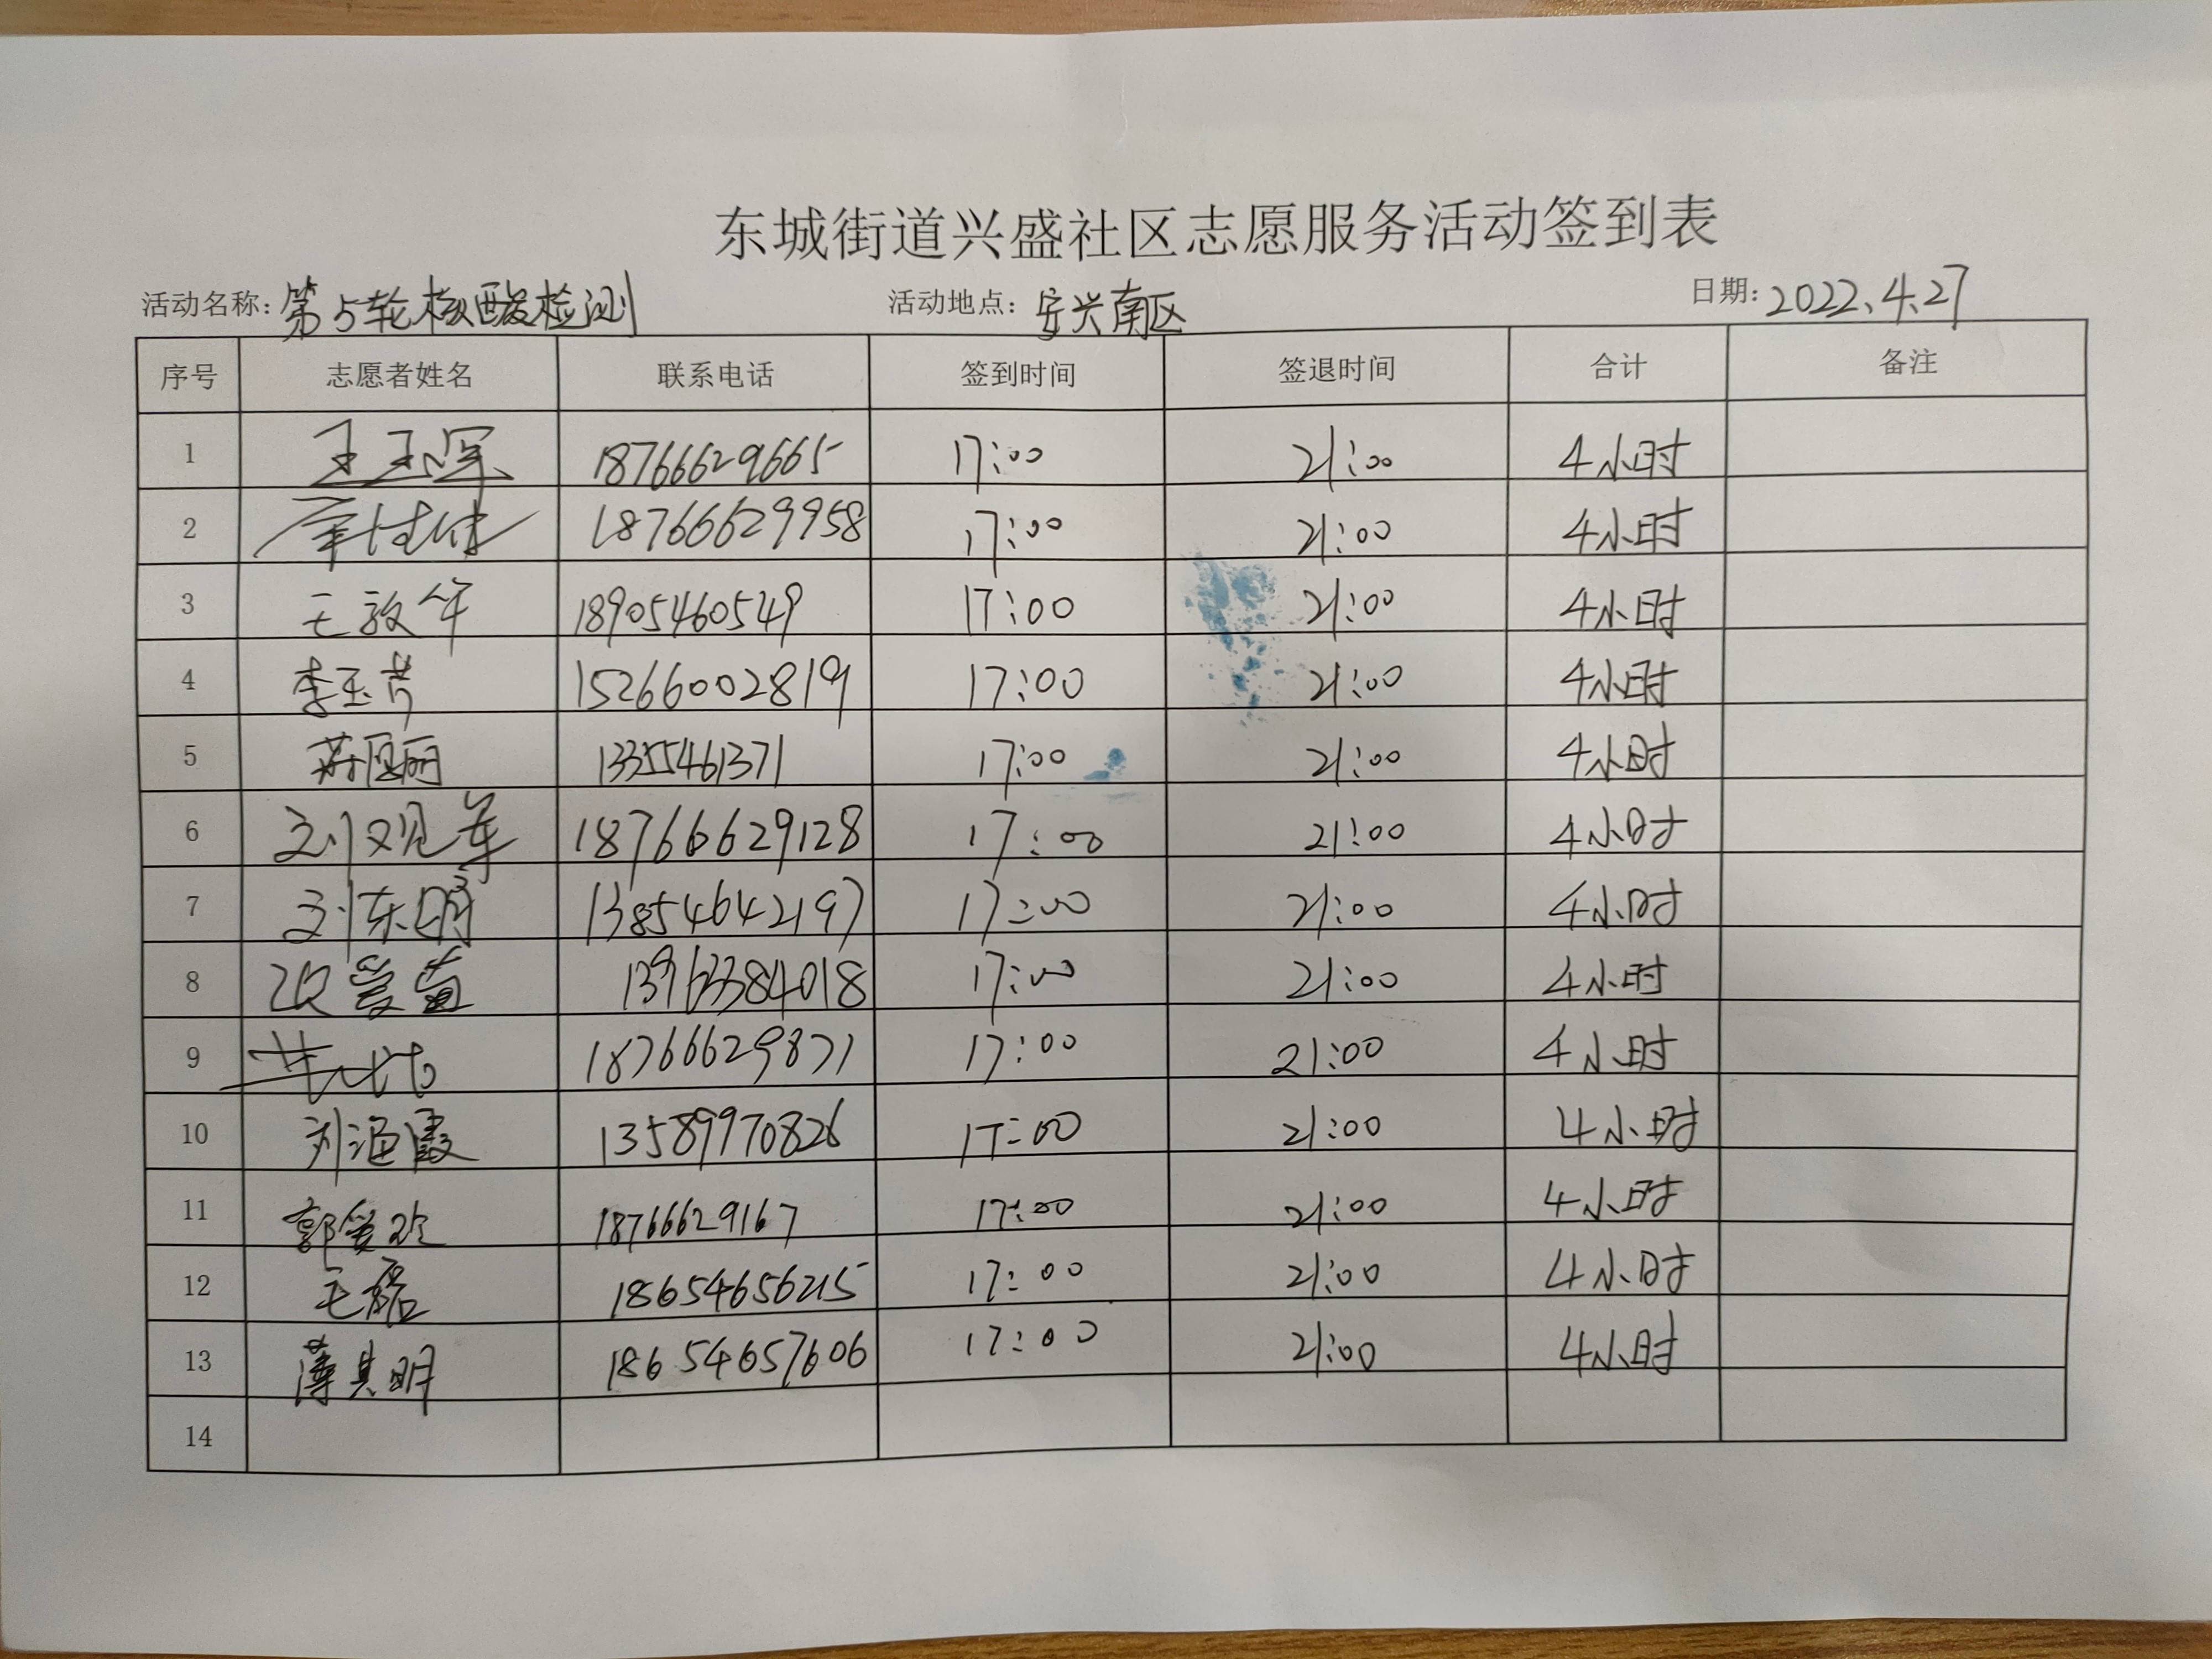 东城街道兴盛社区志愿服务活动签到表
活动名称：第5轮核酸检测 活动地点：安兴南区 日期：2022.4.27
序号 志愿者姓名 联系电话 签到时间 签退时间 合计 备注
1 18766629665 17:00 21:00 4小时
2 18766629958 17:00 21:00 4小时
3 王敦年 18905460549 17:00 21:00 4小时
4 李玉芳 15266002819 17:00 21:00 4小时
5 13355461371 17:00 21:00 4小时
6 刘观军 18766629128 17:00 21:00 4小时
7 刘东明 13854642197 17:00 21:00 4小时
8 13963384018 17:00 21:00 4小时
9 18766629871 17:00 21:00 4小时
10 刘海霞 13589970826 17:00 21:00 4小时
11 郭爱玲 18766629167 17:00 21:00 4小时
12 王磊 18654656215 17:00 21:00 4小时
13 薄其明 18654657606 17:00 21:00 4小时
14